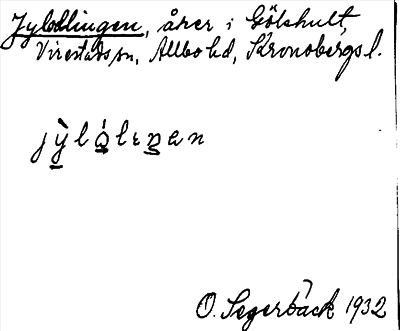 Jylodlingen, åker i Gölshult,
Virestads sn, Allbo hd, Kronobergs l.
jỳlólɩŋen
O. Segerbäck 1932